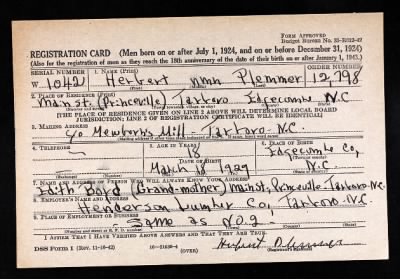 FORM APPROVED
REGISTRATION CARD (Men born on or after July 1, 1924, and on or before December 31, 1924)
(Also for the registration of men as they reach the 18th anniversary of the date of their birth on or after January 1, 1943.)
SERIAL NUMBER 1. NAME (Print) ORDER NUMBER
W 1042 Herbert nmn Plemmer 12,798
2. PLACE OF RESIDENCE (Print)
Main st. (Princeville) Tarboro Edgecombe N.C
[THE PLACE OF RESIDENCE GIVEN ON LINE 2 ABOVE WILL DETERMINE LOCAL BOARD
JURISDICTION; LINE 2 OF REGISTRATION CERTIFICATE WILL BE IDENTICAL]
3. MAILING ADDRESS
Mill - Tarboro - N.C.
4. TELEPHONE 5. AGE IN YEARS 6. PLACE OF BIRTH
18 Edgecombe Co,
DATE OF BIRTH
March 18
N.C.
7. NAME AND ADDRESS OF PERSON WHO WILL ALWAYS KNOW YOUR ADDRESS
Edith Boyd (Grand-mother) main st, Princeville-Tarboro-N.C.
8. EMPLOYER'S NAME AND ADDRESS
Henderson Lumber Co, Tarboro-N.C.
9. PLACE OF EMPLOYMENT OR BUSINESS
Same as NO. 2
I AFFIRM THAT I HAVE VERIFIED ABOVE ANSWERS AND THAT THEY ARE TRUE.
DSS FORM 1 (Rev. 11-16-42) (OVER) Herbert Plemmer